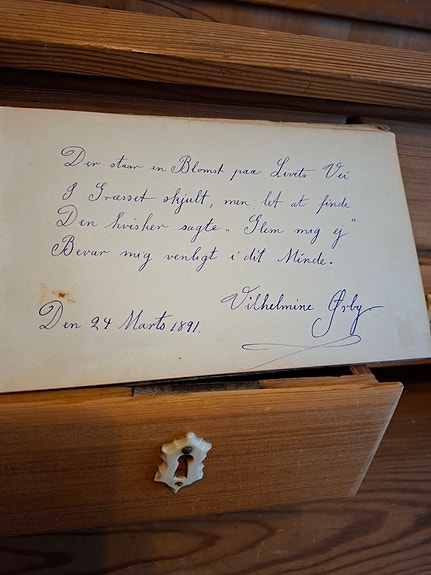 Der staar en Blomst paa Livets Vei
I Græsset skjult, men let at finde
Den hvisker sagte „Glem mig ej"
Bevar mig venligt i dit Minde.
Vilhelmine Ørby
Den 24 Marts 1891.